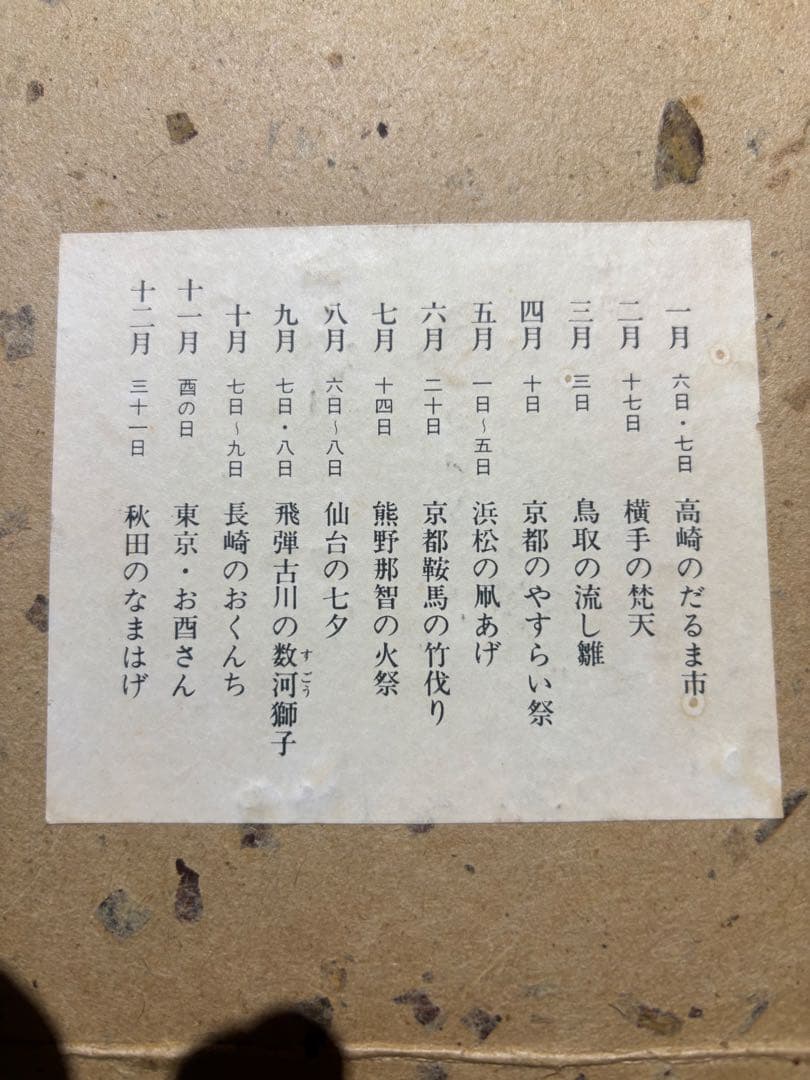 一月 六日・七日 高崎のだるま市
二月 十七日 横手の梵天
三月 三日 鳥取の流し雛
四月 十日 京都のやすらい祭
五月 一日~五日 浜松の凧あげ
六月 二十日 京都鞍馬の竹伐り
七月 十四日 熊野那智の火祭
八月 六日~八日 仙台の七夕
九月 七日・八日 飛弾古川の数河獅子
すごう
十月 七日~九日 長崎のおくんち
十一月 酉の日 東京・お酉さん
十二月 三十一日 秋田のなまはげ